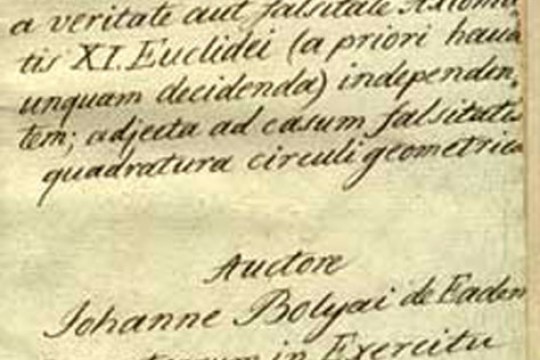 a veritate aut falsitate Axioma
tis XI. Euclidei (a priori haud
unquam decidenda) independen,
tem; adjecta ad casum falsitatis
quadratura circuli geometrica
Auctore
Johanne Bolyai de Eadem
in Exercitu